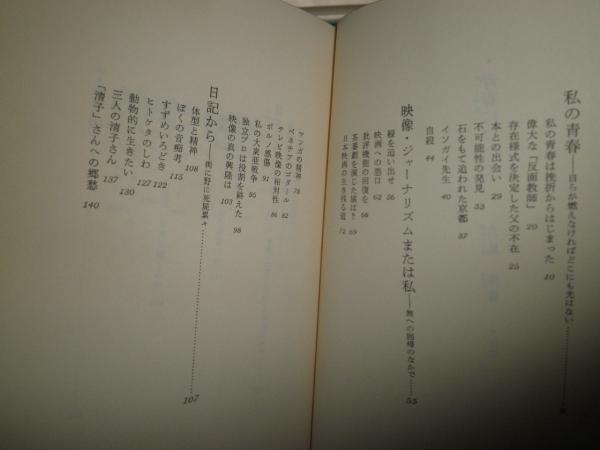 私の青春──自らが燃えなければどこにも光はない
私の青春は挫折からはじまった 10
偉大な「反面教師」 20
存在様式を決定した父の不在 25
本との出会い 29
不可能性の発見 33
石をもて追われた京都 37
イソガイ先生 40
自殺 44
映像・ジャーナリズムまたは私──無への回帰のなかで…… 55
緑を追い出せ 56
映画への悪口 62
批評機能の回復を 66
茶番劇を演じた猿は? 69
日本映画の生き残る道 72
マンガの精神 78
ベネチアのゴダール 82
テレビ映像の相対性 86
ポルノ感傷 91
私の大東亜戦争 95
独立プロは役割を終えた 98
映像の真の興隆は 103
日記から──街に野に死屍累々 107
体型と精神 108
ぼくの音痴考 115
すずめいろどき 122
ヒトケタのしわ 127
動物的に生きたい 130
三人の清子さん 137
「清子」さんへの郷愁 140